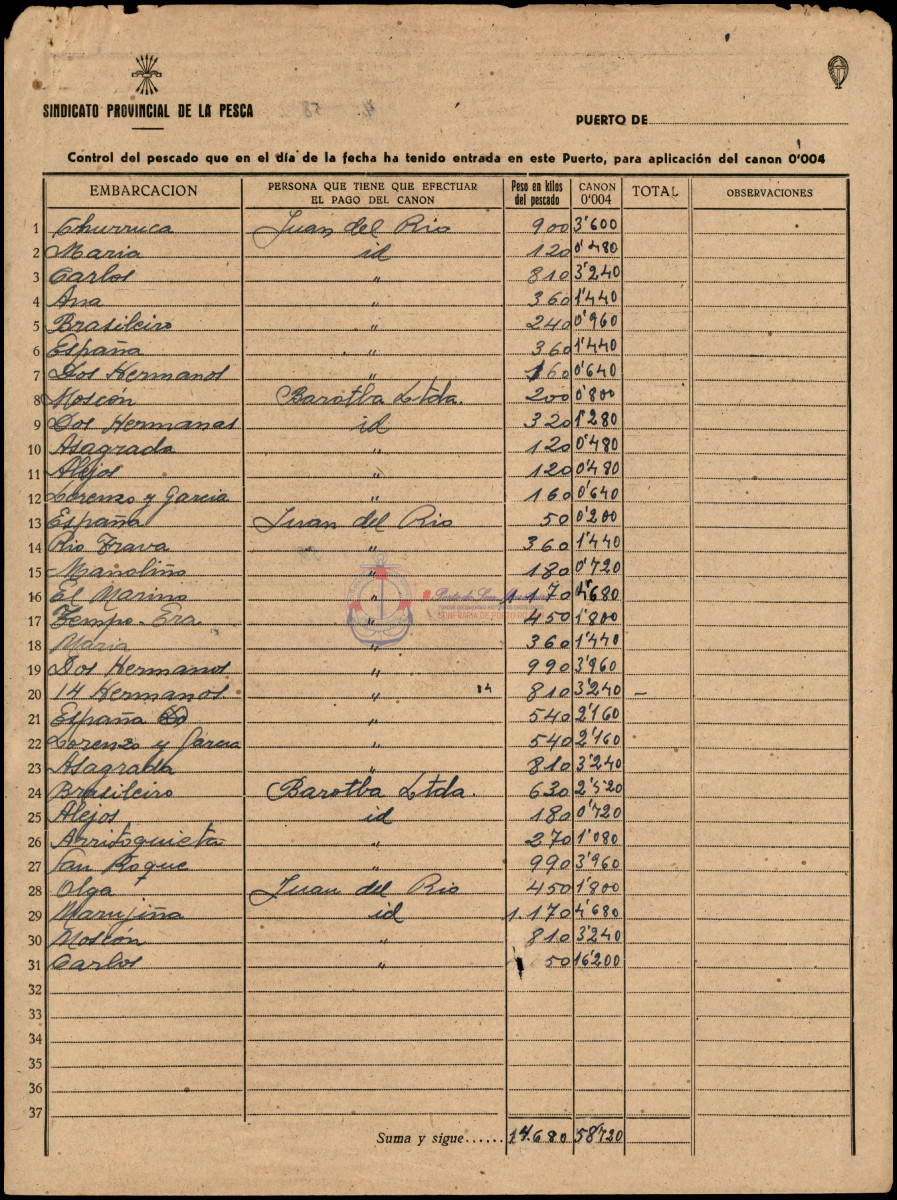 SINDICATO PROVINCIAL DE LA PESCA
PUERTO DE
Control del pescado que en el día de la fecha ha tenido entrada en este Puerto, para aplicación del canon 0'004
EMBARCACION PERSONA QUE TIENE QUE EFECTUAR EL PAGO DEL CANON Peso en kilos del pescado CANON 0'004 TOTAL OBSERVACIONES
1 Churruca Juan del Rio 900 3'600
2 Maria id 120 0'480
3 Carlos " 810 3'240
4 Ana " 360 1'440
5 Brasileiro " 240 0'960
6 España " 360 1'440
7 Dos Hermanos " 160 0'640
8 Moscón Barotba Ltda. 200 0'800
9 Dos Hermanas id 320 1'280
10 Asagrada " 120 0'480
11 Alejos " 120 0'480
12 Lorenzo y Garcia " 160 0'640
13 España Juan del Rio 50 0'200
14 Rio Trava " 360 1'440
15 Manoliño " 180 0'720
16 El Marino " 1.170 4'680
17 Tempo-Era " 450 1'800
18 Maria " 360 1'440
19 Dos Hermanos " 990 3'960
20 14 Hermanos " 14 810 3'240 –
21 España " 540 2'160
22 Lorenzo y Garcia " 540 2'160
23 Asagrada " 810 3'240
24 Brasileiro Barotba Ltda. 630 2'520
25 Alejos id 180 0'720
26 Arritoquieta " 270 1'080
27 San Roque " 990 3'960
28 Olga Juan del Rio 450 1'800
29 Marujiña id 1.170 4'680
30 Moscón " 810 3'240
31 Carlos " 50 16'200
32
33
34
35
36
37
Suma y sigue...... 14.680 58'720